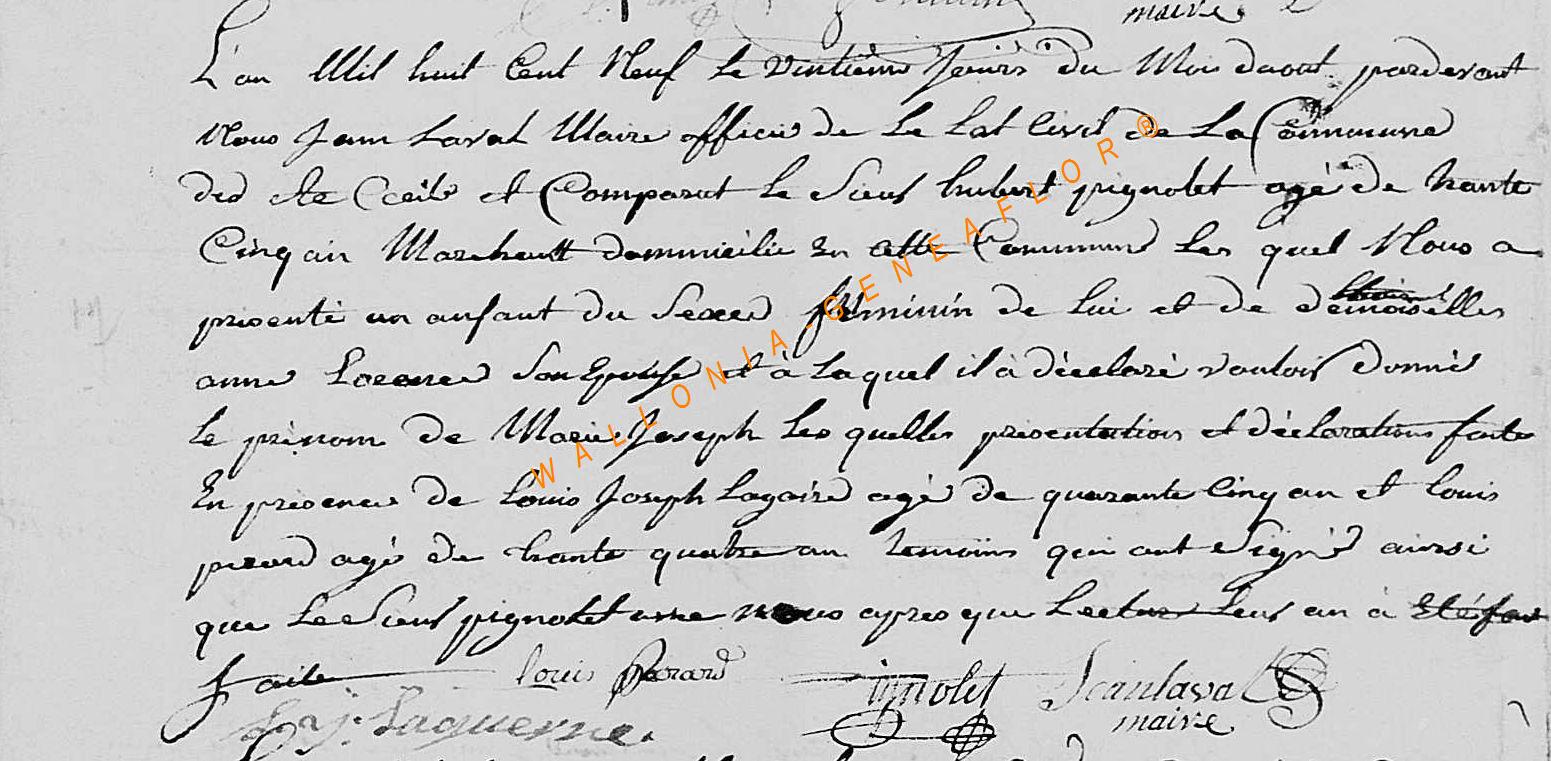 maire
L'an Mil huit Cent Neuf Le vintieme Jours du Mois daout pardevant
Nous Jean Laval Maire officié de Le tat Civil de La Commune
des ste Cecile et Comparut Le Sieur hubert pignolet agé de trante
Cinq ain Marchantt dommicilié En cette Commune Les quel Nous a
présenté un anfant du Sexes feminin de lui et de demoiselles
anne Son Epouse et à Laquel il à déclaré vouloir donné
Le prénom de Marie Joseph Les quelles présentations et déclarations faite
En présence de Louis Joseph agé de quarante Cinq an et louis
perard agé de trante quatre an temoins qui ont Signé ainsi
que Le Sieur pignolet avec nous apres que Lecture Leur an à Eté
faite louis Perard pignolet Jean laval
maire
WALLONIA-GENEAFLOR ®